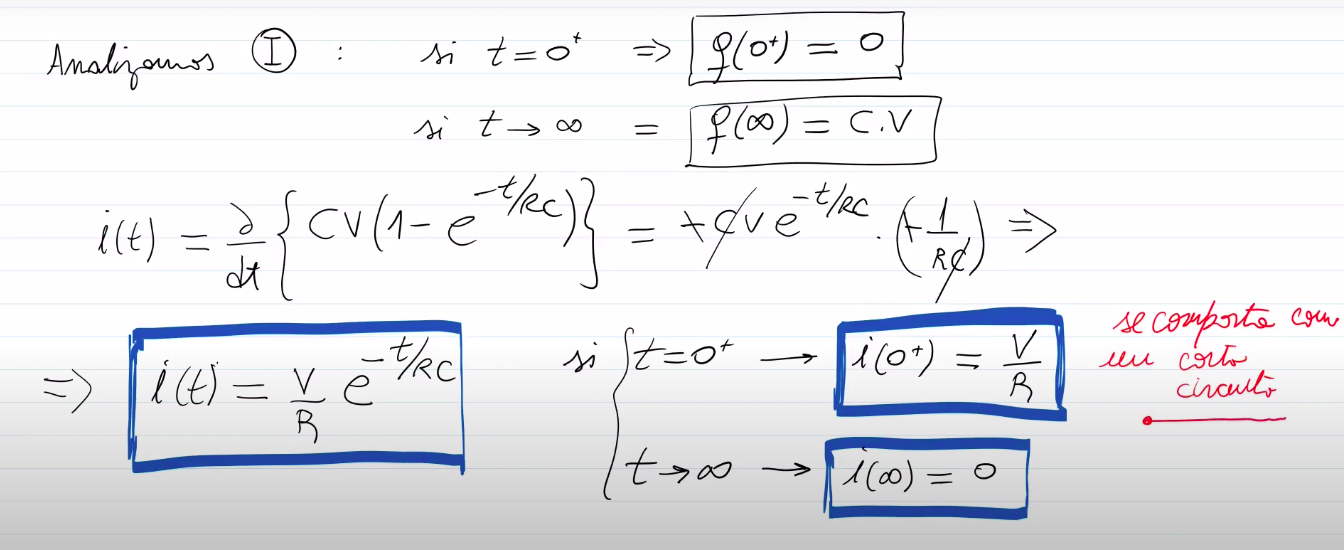 Analizamos Ⓘ : si t = 0⁺ => q(0⁺) = 0
si t → ∞ = q(∞) = C.V
i(t) = ∂/dt { CV(1 - e^(-t/RC)) } = + C V e^(-t/RC) . (+ 1/RC) =>
=> i(t) = V/R e^(-t/RC)
si { t = 0⁺ → i(0⁺) = V/R
se comporta com
un corto
circuito
t → ∞ → i(∞) = 0